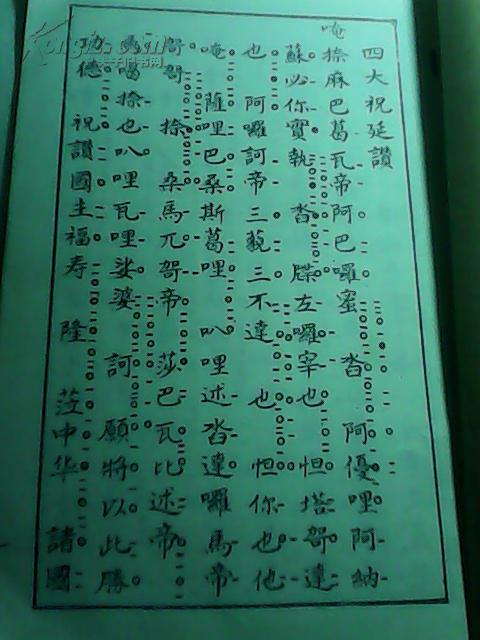 四大祝延讃
唵捺麻巴葛瓦帝阿巴囉蜜沓阿優哩阿納
蘇必你實執沓牒左囉宰也怛塔哿達
也阿囉訶帝三藐三不達也怛你也他
唵薩哩巴桑斯葛哩叭哩述沓達囉馬帝
哿哿捺桑馬兀哿帝莎巴瓦比述帝
馬曷捺也叭哩瓦哩娑婆訶願將以此勝
功德祝讃國主福寿隆莅中华諸國